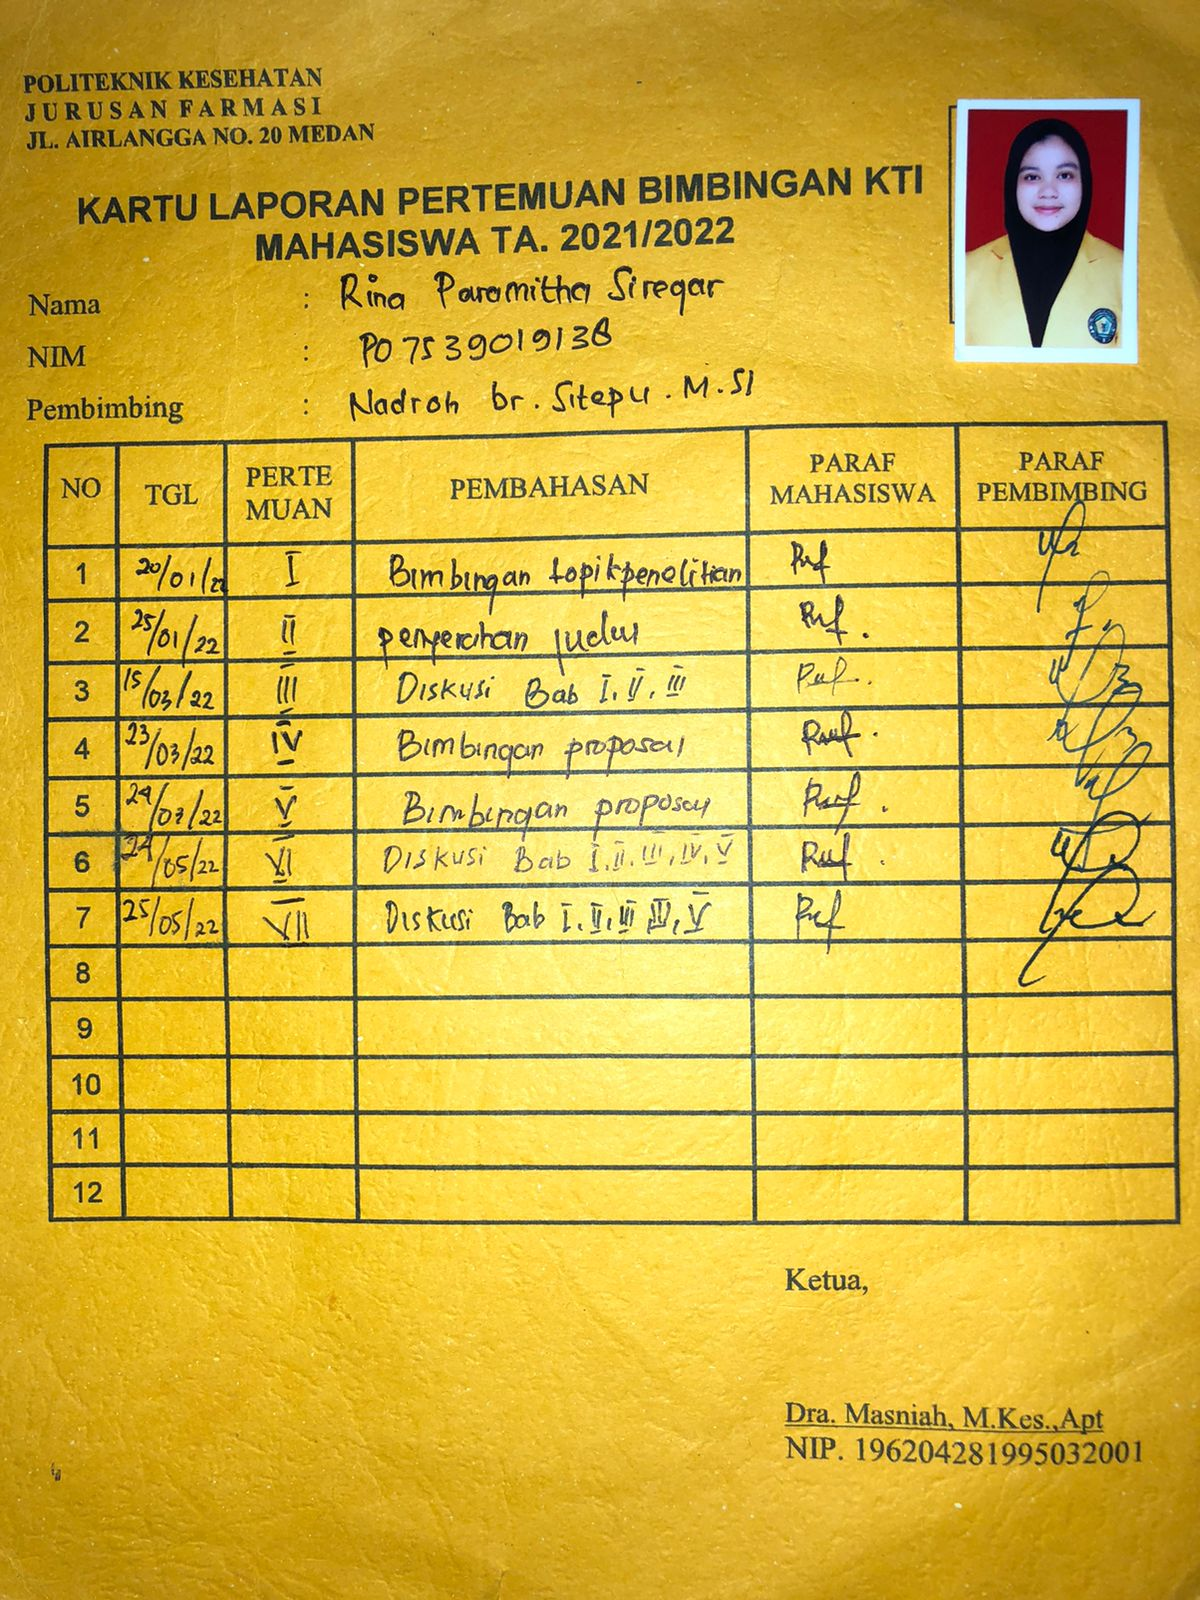 POLITEKNIK KESEHATAN
JURUSAN FARMASI
JL. AIRLANGGA NO. 20 MEDAN
KARTU LAPORAN PERTEMUAN BIMBINGAN KTI
MAHASISWA TA. 2021/2022
Nama : Rina Paramitha Siregar
NIM : P07539019138
Pembimbing : Nadroh br. Sitepu. M.SI
NO TGL PERTE MUAN PEMBAHASAN PARAF MAHASISWA PARAF PEMBIMBING
1 20/01/22 I Bimbingan topik penelitian
2 25/01/22 II penyerahan judul
3 15/03/22 III Diskusi Bab I, II, III
4 23/03/22 IV Bimbingan proposal
5 V Bimbingan proposal
6 24/05/22 VI Diskusi Bab I, II, III, IV, V
7 25/05/22 VII Diskusi Bab I, II, III, IV, V
8
9
10
11
12
Ketua,
Dra. Masniah, M.Kes.,Apt
NIP. 196204281995032001